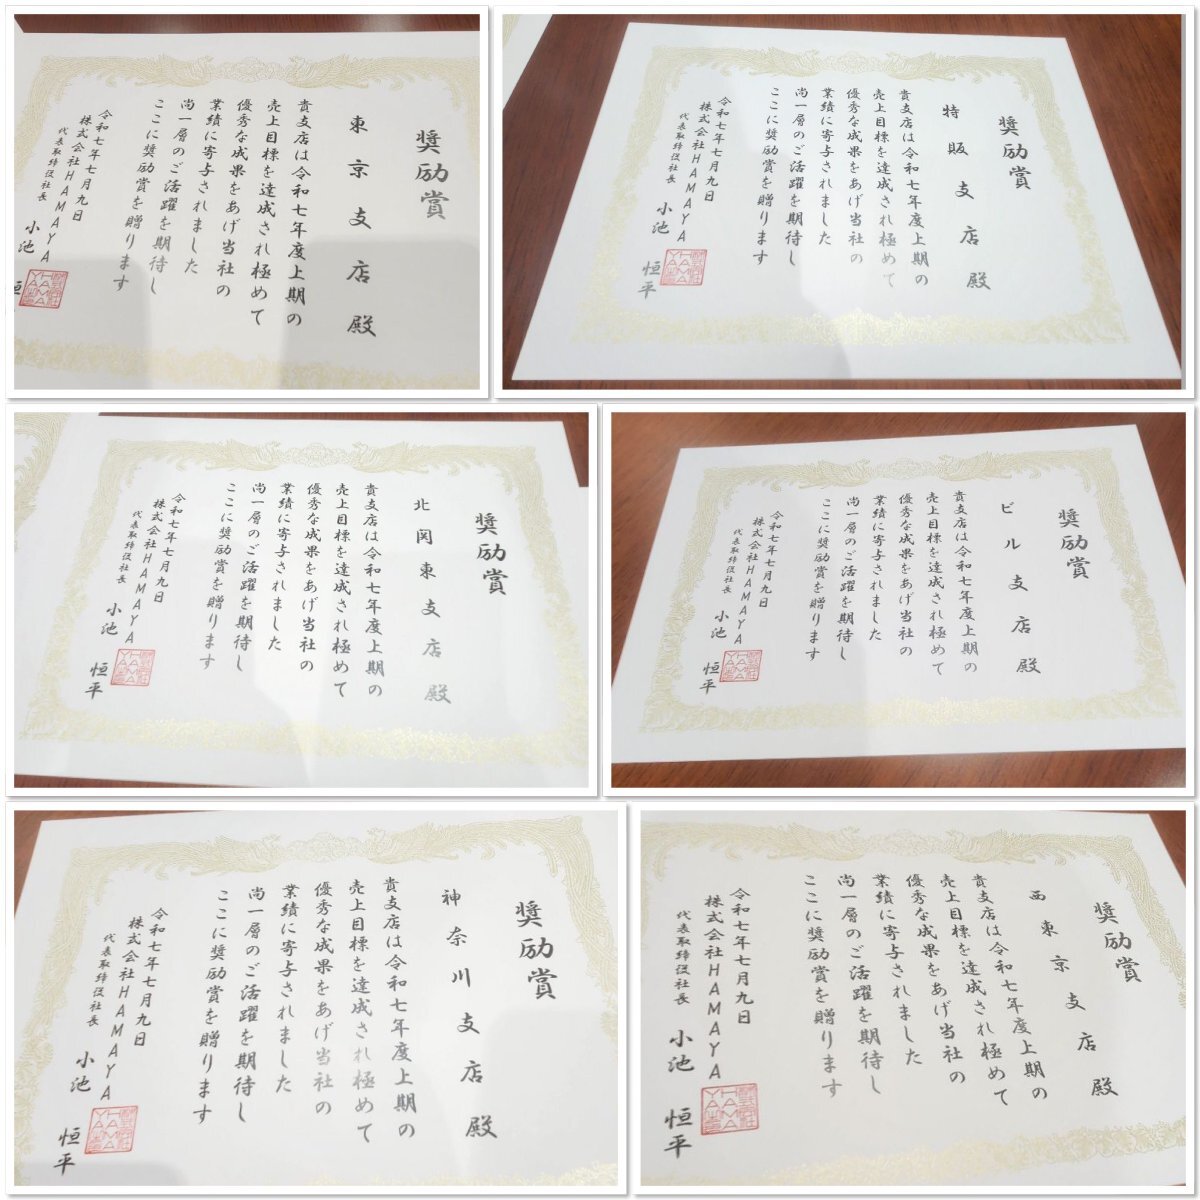 奨励賞
東京支店殿
貴支店は令和七年度上期の
売上目標を達成され極めて
優秀な成果をあげ当社の
業績に寄与されました
尚一層のご活躍を期待し
ここに奨励賞を贈ります
令和七年七月九日
株式会社HAMAYA
代表取締役社長
小池 恒
奨励賞
特販支店殿
貴支店は令和七年度上期の
売上目標を達成され極めて
優秀な成果をあげ当社の
業績に寄与されました
尚一層のご活躍を期待し
ここに奨励賞を贈ります
令和七年七月九日
株式会社HAMAYA
代表取締役社長
小池 恒平
奨励賞
北関東支店殿
貴支店は令和七年度上期の
売上目標を達成され極めて
優秀な成果をあげ当社の
業績に寄与されました
尚一層のご活躍を期待し
ここに奨励賞を贈ります
令和七年七月九日
株式会社HAMAYA
代表取締役社長
小池 恒平
奨励賞
ビル支店殿
貴支店は令和七年度上期の
売上目標を達成され極めて
優秀な成果をあげ当社の
業績に寄与されました
尚一層のご活躍を期待し
ここに奨励賞を贈ります
令和七年七月九日
株式会社HAMAYA
代表取締役社長
小池 恒平
奨励賞
神奈川支店殿
貴支店は令和七年度上期の
売上目標を達成され極めて
優秀な成果をあげ当社の
業績に寄与されました
尚一層のご活躍を期待し
ここに奨励賞を贈ります
令和七年七月九日
株式会社HAMAYA
代表取締役社長
小池 恒平
奨励賞
西東京支店殿
貴支店は令和七年度上期の
売上目標を達成され極めて
優秀な成果をあげ当社の
業績に寄与されました
尚一層のご活躍を期待し
ここに奨励賞を贈ります
令和七年七月九日
株式会社HAMAYA
代表取締役社長
小池 恒平